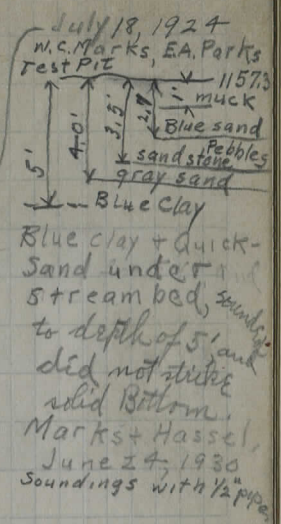 July 18, 1924
W.C. Marks, E.A. Parks
Test Pit
1157.3
1'
muck
2.7
Blue sand
3.5'
Pebbles
sand stone
4.0'
gray sand
5'
Blue Clay
Blue clay + Quick-
Sand under
stream bed, sounded
to depth of 5', and
did not strike
solid Bottom.
Marks + Hassel,
June 24, 1930
Soundings with 1/2" pipe